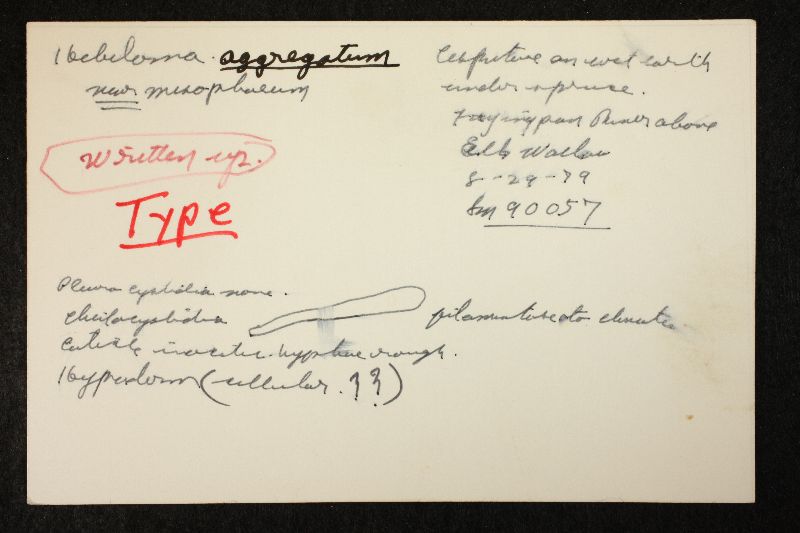 Hebeloma aggregatum
near mesophaeum
Written up.
Type
Cespitose on wet earth
under spruce.
Fryingpan River above
Elk Wallow
8-29-79
Sm 90057
Pleurocystidia none.
Cheilocystidia filamentose to clavate
Cuticle hyphae rough.
Hypoderm (cellular ??)